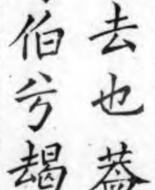 去也葢
伯兮朅